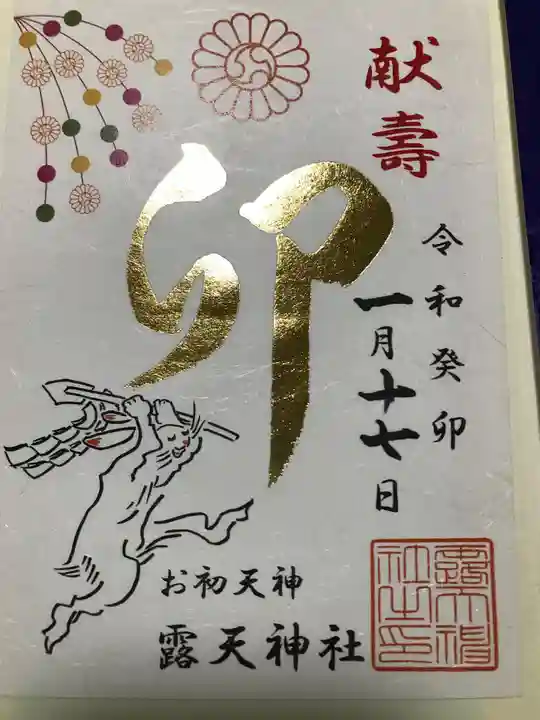 献壽
令和癸卯
一月十七日
卯
お初天神
露天神社
露天神
社之印